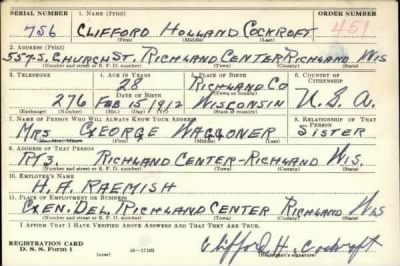 SERIAL NUMBER 1. NAME (Print) ORDER NUMBER
756 CLIFFORD HOLLAND COCKROFT 451
(First) (Middle) (Last)
2. ADDRESS (Print)
557 S. CHURCH ST. RICHLAND CENTER RICHLAND WIS
(Number and street or R. F. D. number) (Town) (County) (State)
3. TELEPHONE 4. AGE IN YEARS 5. PLACE OF BIRTH 6. COUNTRY OF CITIZENSHIP
28 RICHLAND CO
DATE OF BIRTH (Town or county)
276 FEB 15 1912 WISCONSIN U.S.A.
(Exchange) (Number) (Mo.) (Day) (Yr.) (State or country)
7. NAME OF PERSON WHO WILL ALWAYS KNOW YOUR ADDRESS 8. RELATIONSHIP OF THAT PERSON
MRS GEORGE WAGGONER SISTER
(Mr., Mrs., Miss) (First) (Middle) (Last)
9. ADDRESS OF THAT PERSON
RT 3. RICHLAND CENTER-RICHLAND WIS.
(Number and street or R. F. D. number) (Town) (County) (State)
10. EMPLOYER'S NAME
H. A. RAEMISH
11. PLACE OF EMPLOYMENT OR BUSINESS
GEN. DEL. RICHLAND CENTER RICHLAND WIS
(Number and street or R. F. D. number) (Town) (County) (State)
I AFFIRM THAT I HAVE VERIFIED ABOVE ANSWERS AND THAT THEY ARE TRUE.
REGISTRATION CARD
D. S. S. Form 1 (over) 16-17105 Clifford H. Cockroft
(Registrant's signature)